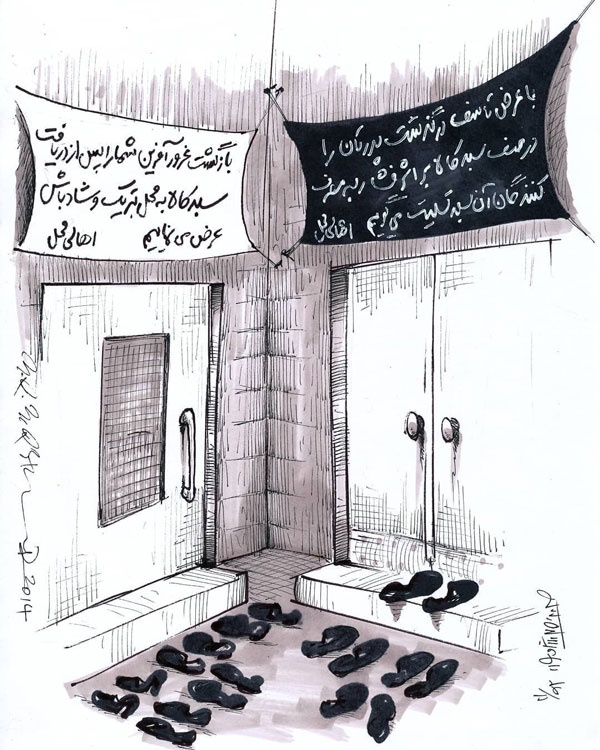 با عرض تاسف درگذشت پدرتان را
در صف سبد کالا بر اثر فشار به مصرف
کنندگان آن سبد تسلیت می گوییم اهالی محل
بازگشت غرورآفرین شما را پس از دریافت
سبد کالا به محل تبریک و شادباش
عرض می نماییم اهالی محل
2014